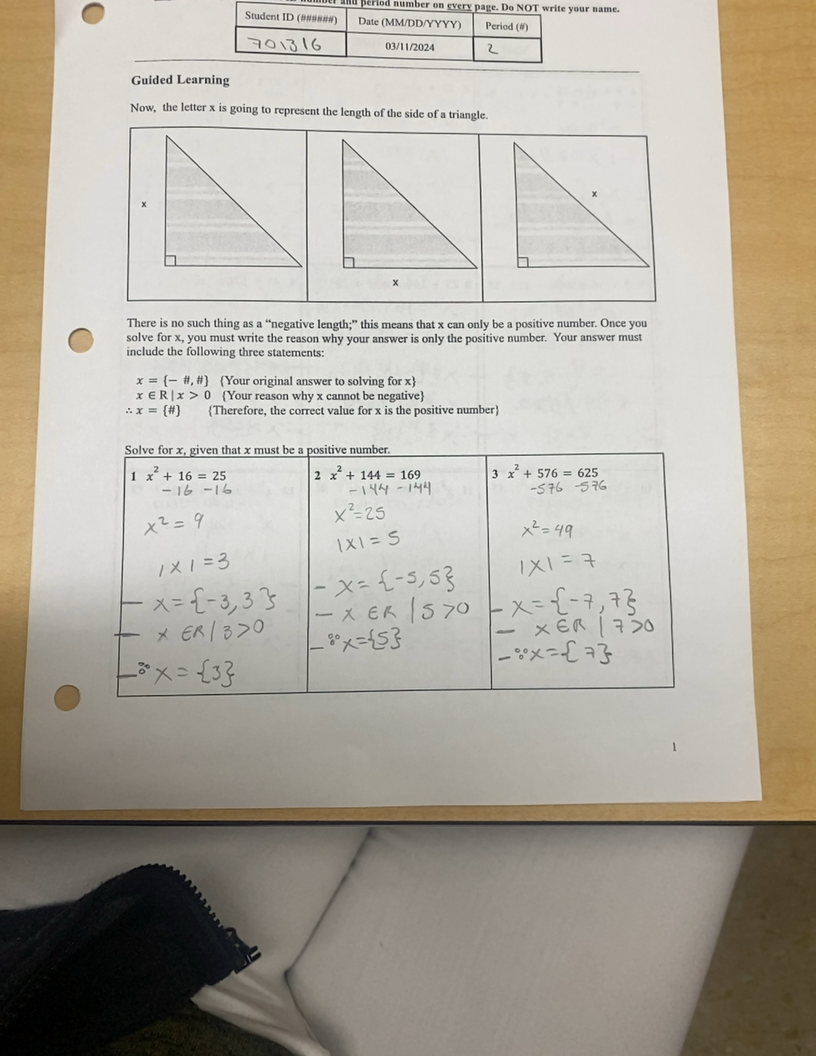 number and period number on every page. Do NOT write your name.
Student ID (######) Date (MM/DD/YYYY) Period (#)
701316 03/11/2024 2
Guided Learning
Now, the letter x is going to represent the length of the side of a triangle.
x
x
x
There is no such thing as a “negative length;” this means that x can only be a positive number. Once you
solve for x, you must write the reason why your answer is only the positive number. Your answer must
include the following three statements:
x = {− #, #} {Your original answer to solving for x}
x ∈ R | x > 0 {Your reason why x cannot be negative}
∴ x = {#} {Therefore, the correct value for x is the positive number}
Solve for x, given that x must be a positive number.
1 x² + 16 = 25
-16 -16
x² = 9
|x| = 3
- x = {-3, 3}
- x ∈ R | 3 > 0
- ∴ x = {3}
2 x² + 144 = 169
-144 -144
x² = 25
|x| = 5
- x = {-5, 5}
- x ∈ R | 5 > 0
- ∴ x = {5}
3 x² + 576 = 625
-576 -576
x² = 49
|x| = 7
- x = {-7, 7}
- x ∈ R | 7 > 0
- ∴ x = {7}
1